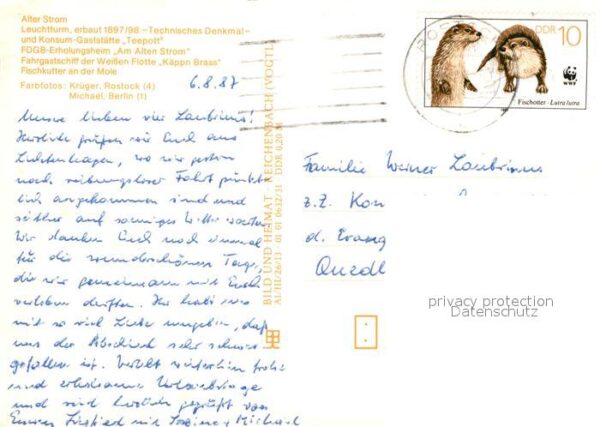 Alter Strom
Leuchtturm, erbaut 1897/98 – Technisches Denkmal –
und Konsum-Gaststätte „Teepott"
FDGB-Erholungsheim „Am Alten Strom"
Fahrgastschiff der Weißen Flotte „Käppn Brass"
Fischkutter an der Mole
Farbfotos: Krüger, Rostock (4)
Michael, Berlin (1)
6.8.87
Unsere lieben vier
Herzliche grüßen wir Euch aus
wo wir gestern
nach reibungsloser Fahrt pünkt-
lich angekommen sind und
seither auf sonniges Wetter warten.
Wir danken Euch noch einmal
für die wunderschönen Tage,
die wir gemeinsam mit Euch
verleben durften. Ihr habt uns
mit so viel Liebe umgeben, daß
uns der Abschied sehr schwer
gefallen ist. Verlebt weiterhin frohe
und erholsame Urlaubstage
und seid herzlich gegrüßt von
Euren Siegfried mit Michael
BILD UND HEIMAT REICHENBACH (VOGTL)
A1/III/26/13 01 01 0632/31 DDR 0,20 M
DDR 10
WWF
Fischotter · Lutra lutra
Familie Werner
z.Z. Kon
d. Evang
Quedl
privacy protection
Datenschutz